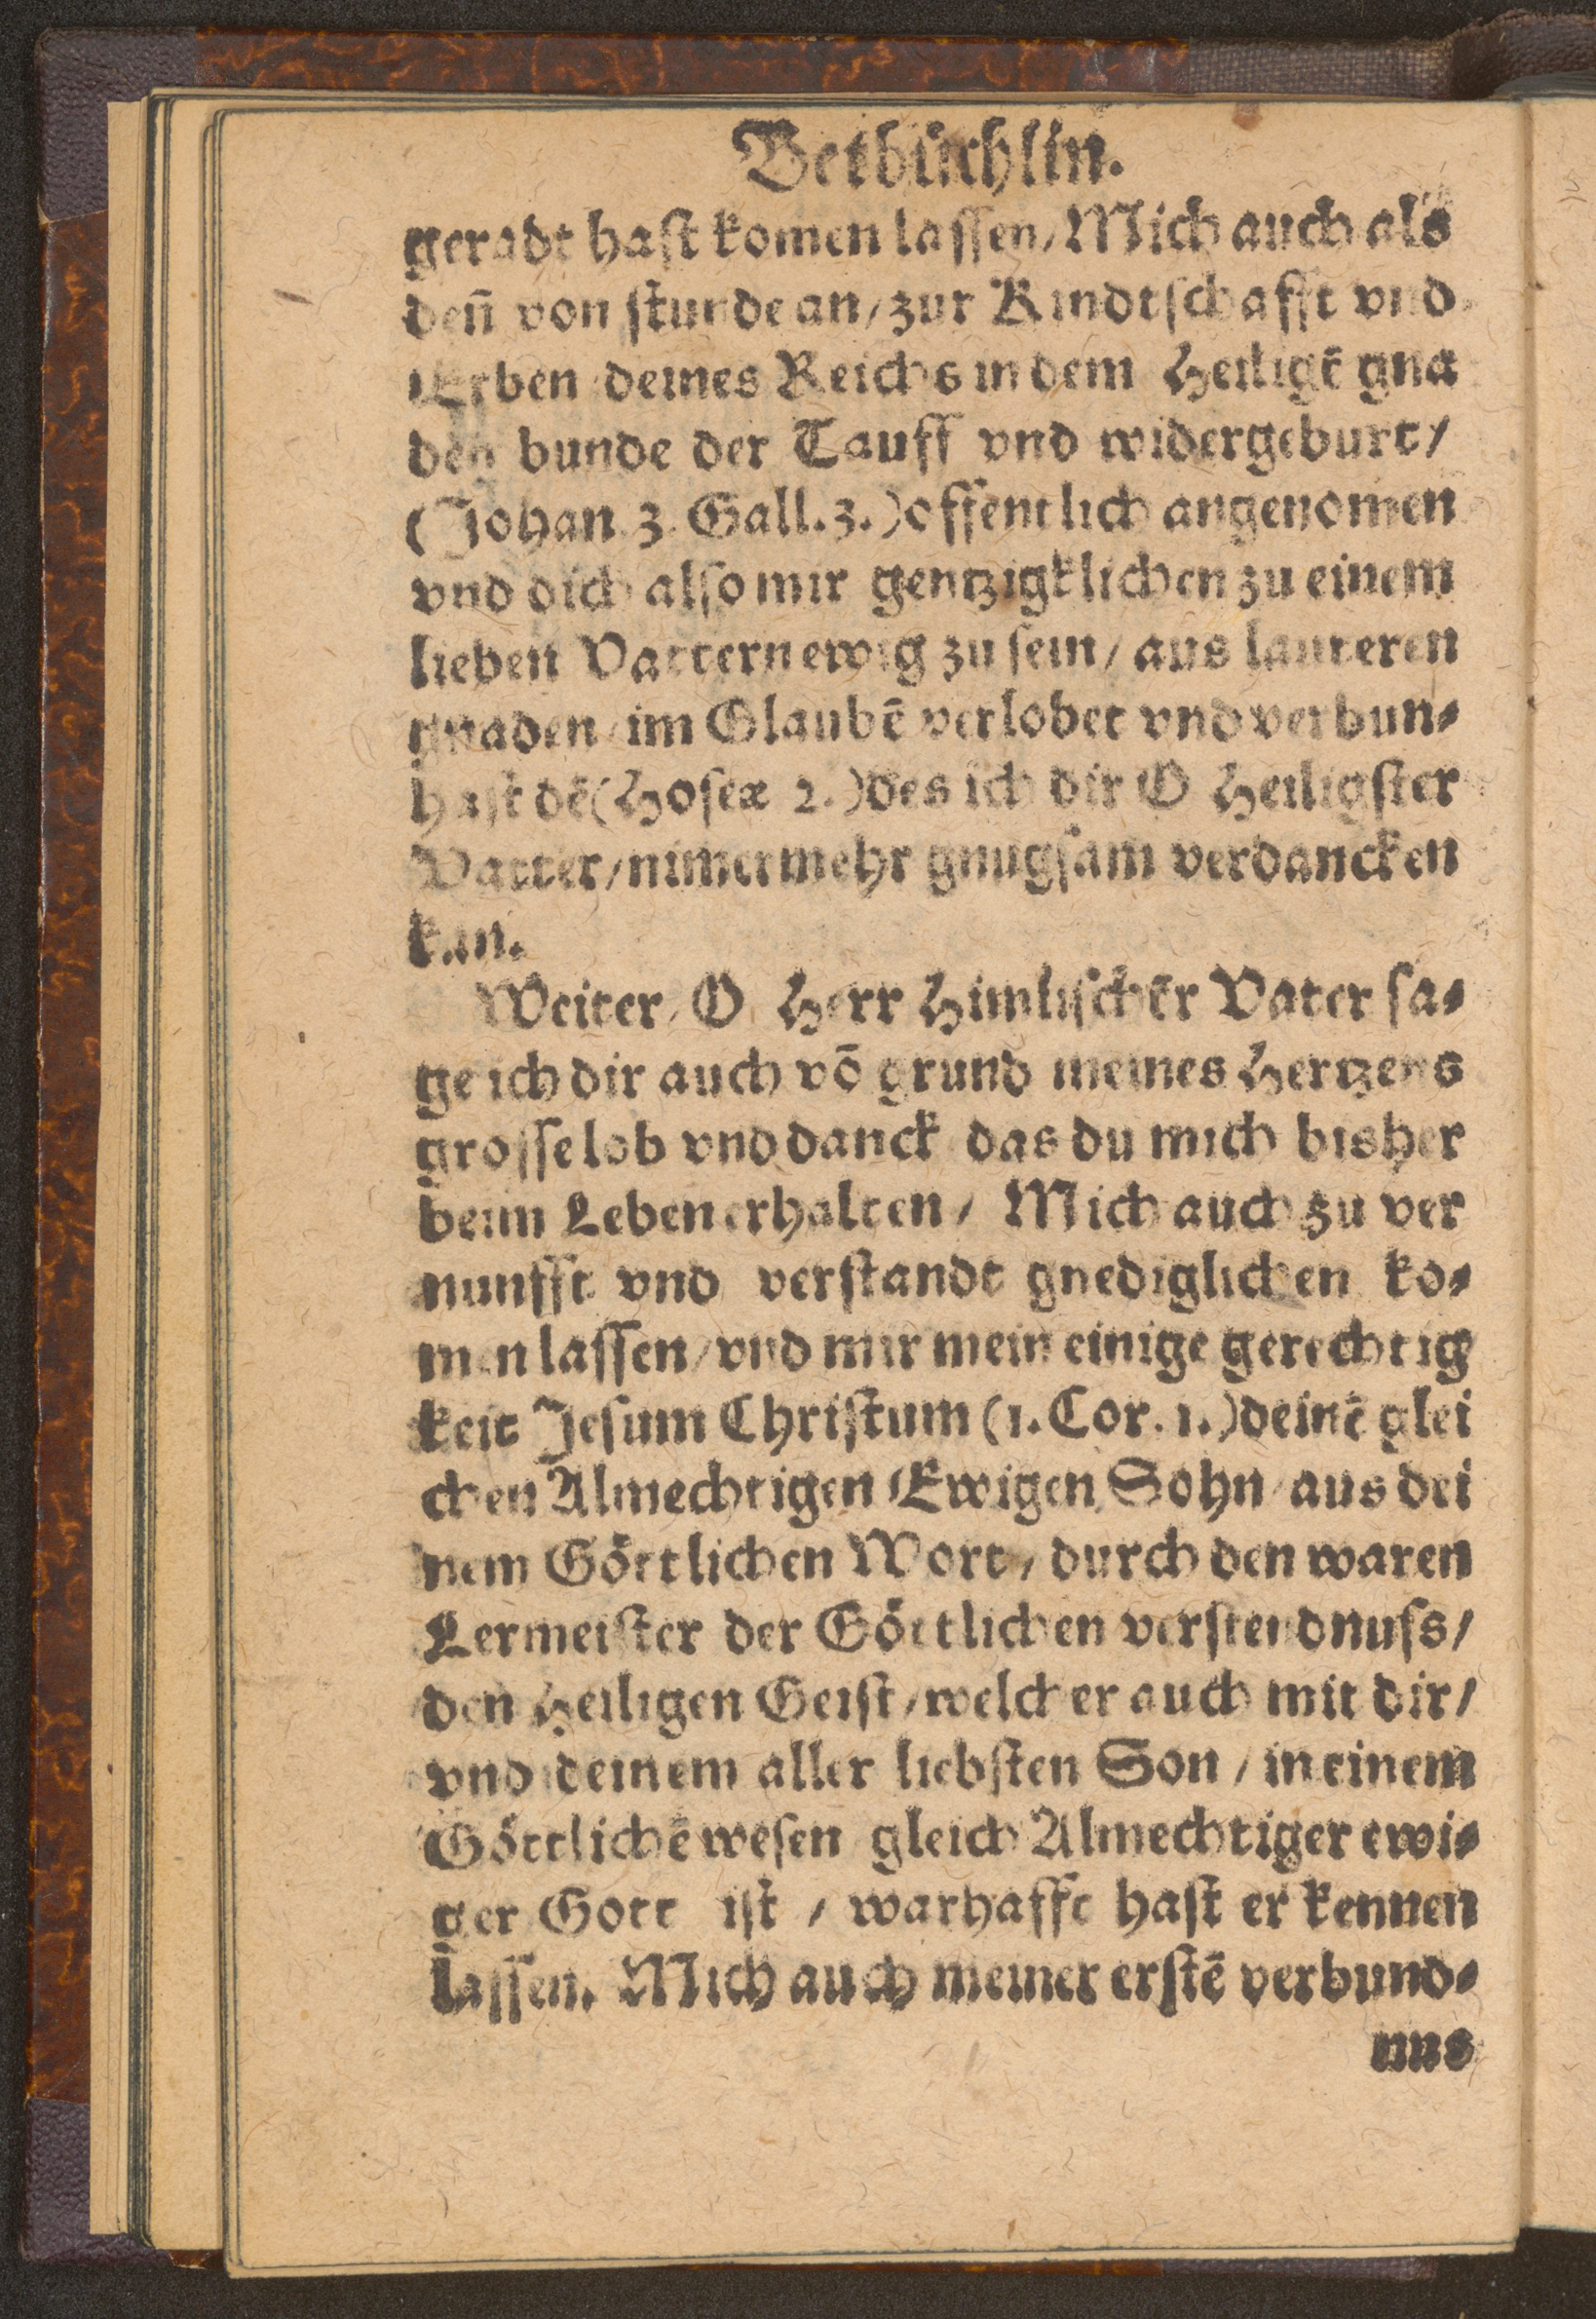 Betbuͤchlin.
geradt hast komen lassen/ Mich auch als
deñ von stunde an/ zur Kindtschafft vnd
Erben deines Reichs in dem Heiligē gna
den bunde der Tauff vnd widergeburt/
(Johan 3. Gall. 3.) offentlich angenomen
vnd dich also mir gentzigklichen zu einem
lieben Vattern ewig zu sein/ aus lauteren
gnaden/ im Glaubē verlobet vnd verbun⸗
hast dē (Hoseæ 2.) des ich dir O Heiligster
Vatter/ nimermehr gnugsam verdancken
kan.
Weiter/ O Herr Himlischer Vater sa⸗
ge ich dir auch vō grund meines Hertzens
grosse lob vnd danck das du mich bisher
beim Leben erhalten/ Mich auch zu ver
nunfft vnd verstandt gnediglichen ko⸗
men lassen/ vnd mir mein einige gerechtig
keit Jesum Christum (1. Cor. 1.) deinē glei
chen Almechtigen Ewigen Sohn/ aus dei
nem Göttlichen Wort/ durch den waren
Lermeister der Göttlichen verstendnuss/
den Heiligen Geist/ welcher auch mit dir/
vnd deinem aller liebsten Son/ in einem
Göttlichē wesen gleich Almechtiger ewi⸗
ger Gott ist/ warhafft hast er kennen
lassen. Mich auch meiner erstē verbund⸗
nus